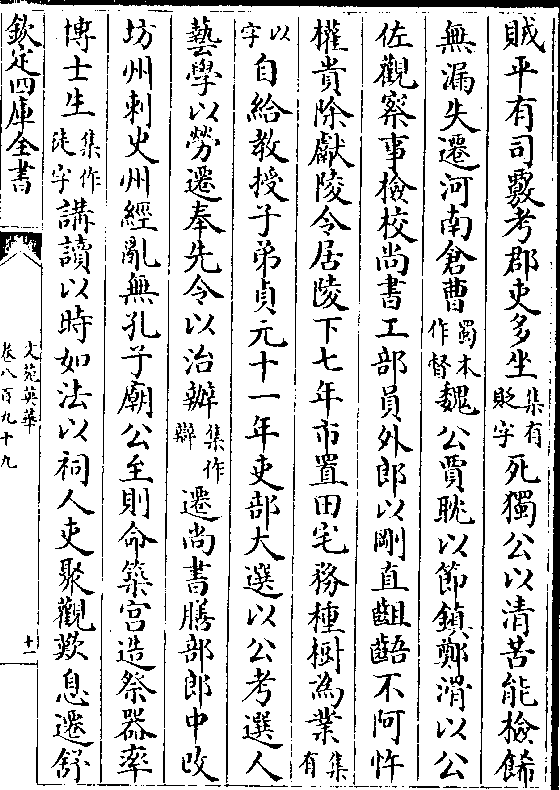 賊平有司覈考郡吏多坐集有貶字死獨公以清苦能檢飭
無漏失遷河南倉曹蜀本作督魏公賈耽以節鎮鄭滑以公
佐觀察事檢校尚書工部員外郎以剛直齟齬不阿忤
權貴除獻陵令居陵下七年市置田宅務種樹為業集有
以字自給教授子弟貞元十一年吏部大選以公考選人
藝學以勞遷奉先令以治辦集作辯遷尚書膳部郎中改
坊州刺史州經亂無孔子廟公至則命築宫造祭器率
博士生集作徒字講讀以時如法以祠人吏聚觀歎息遷舒
欽定四庫全書
文苑英華
卷八百九十九
十一